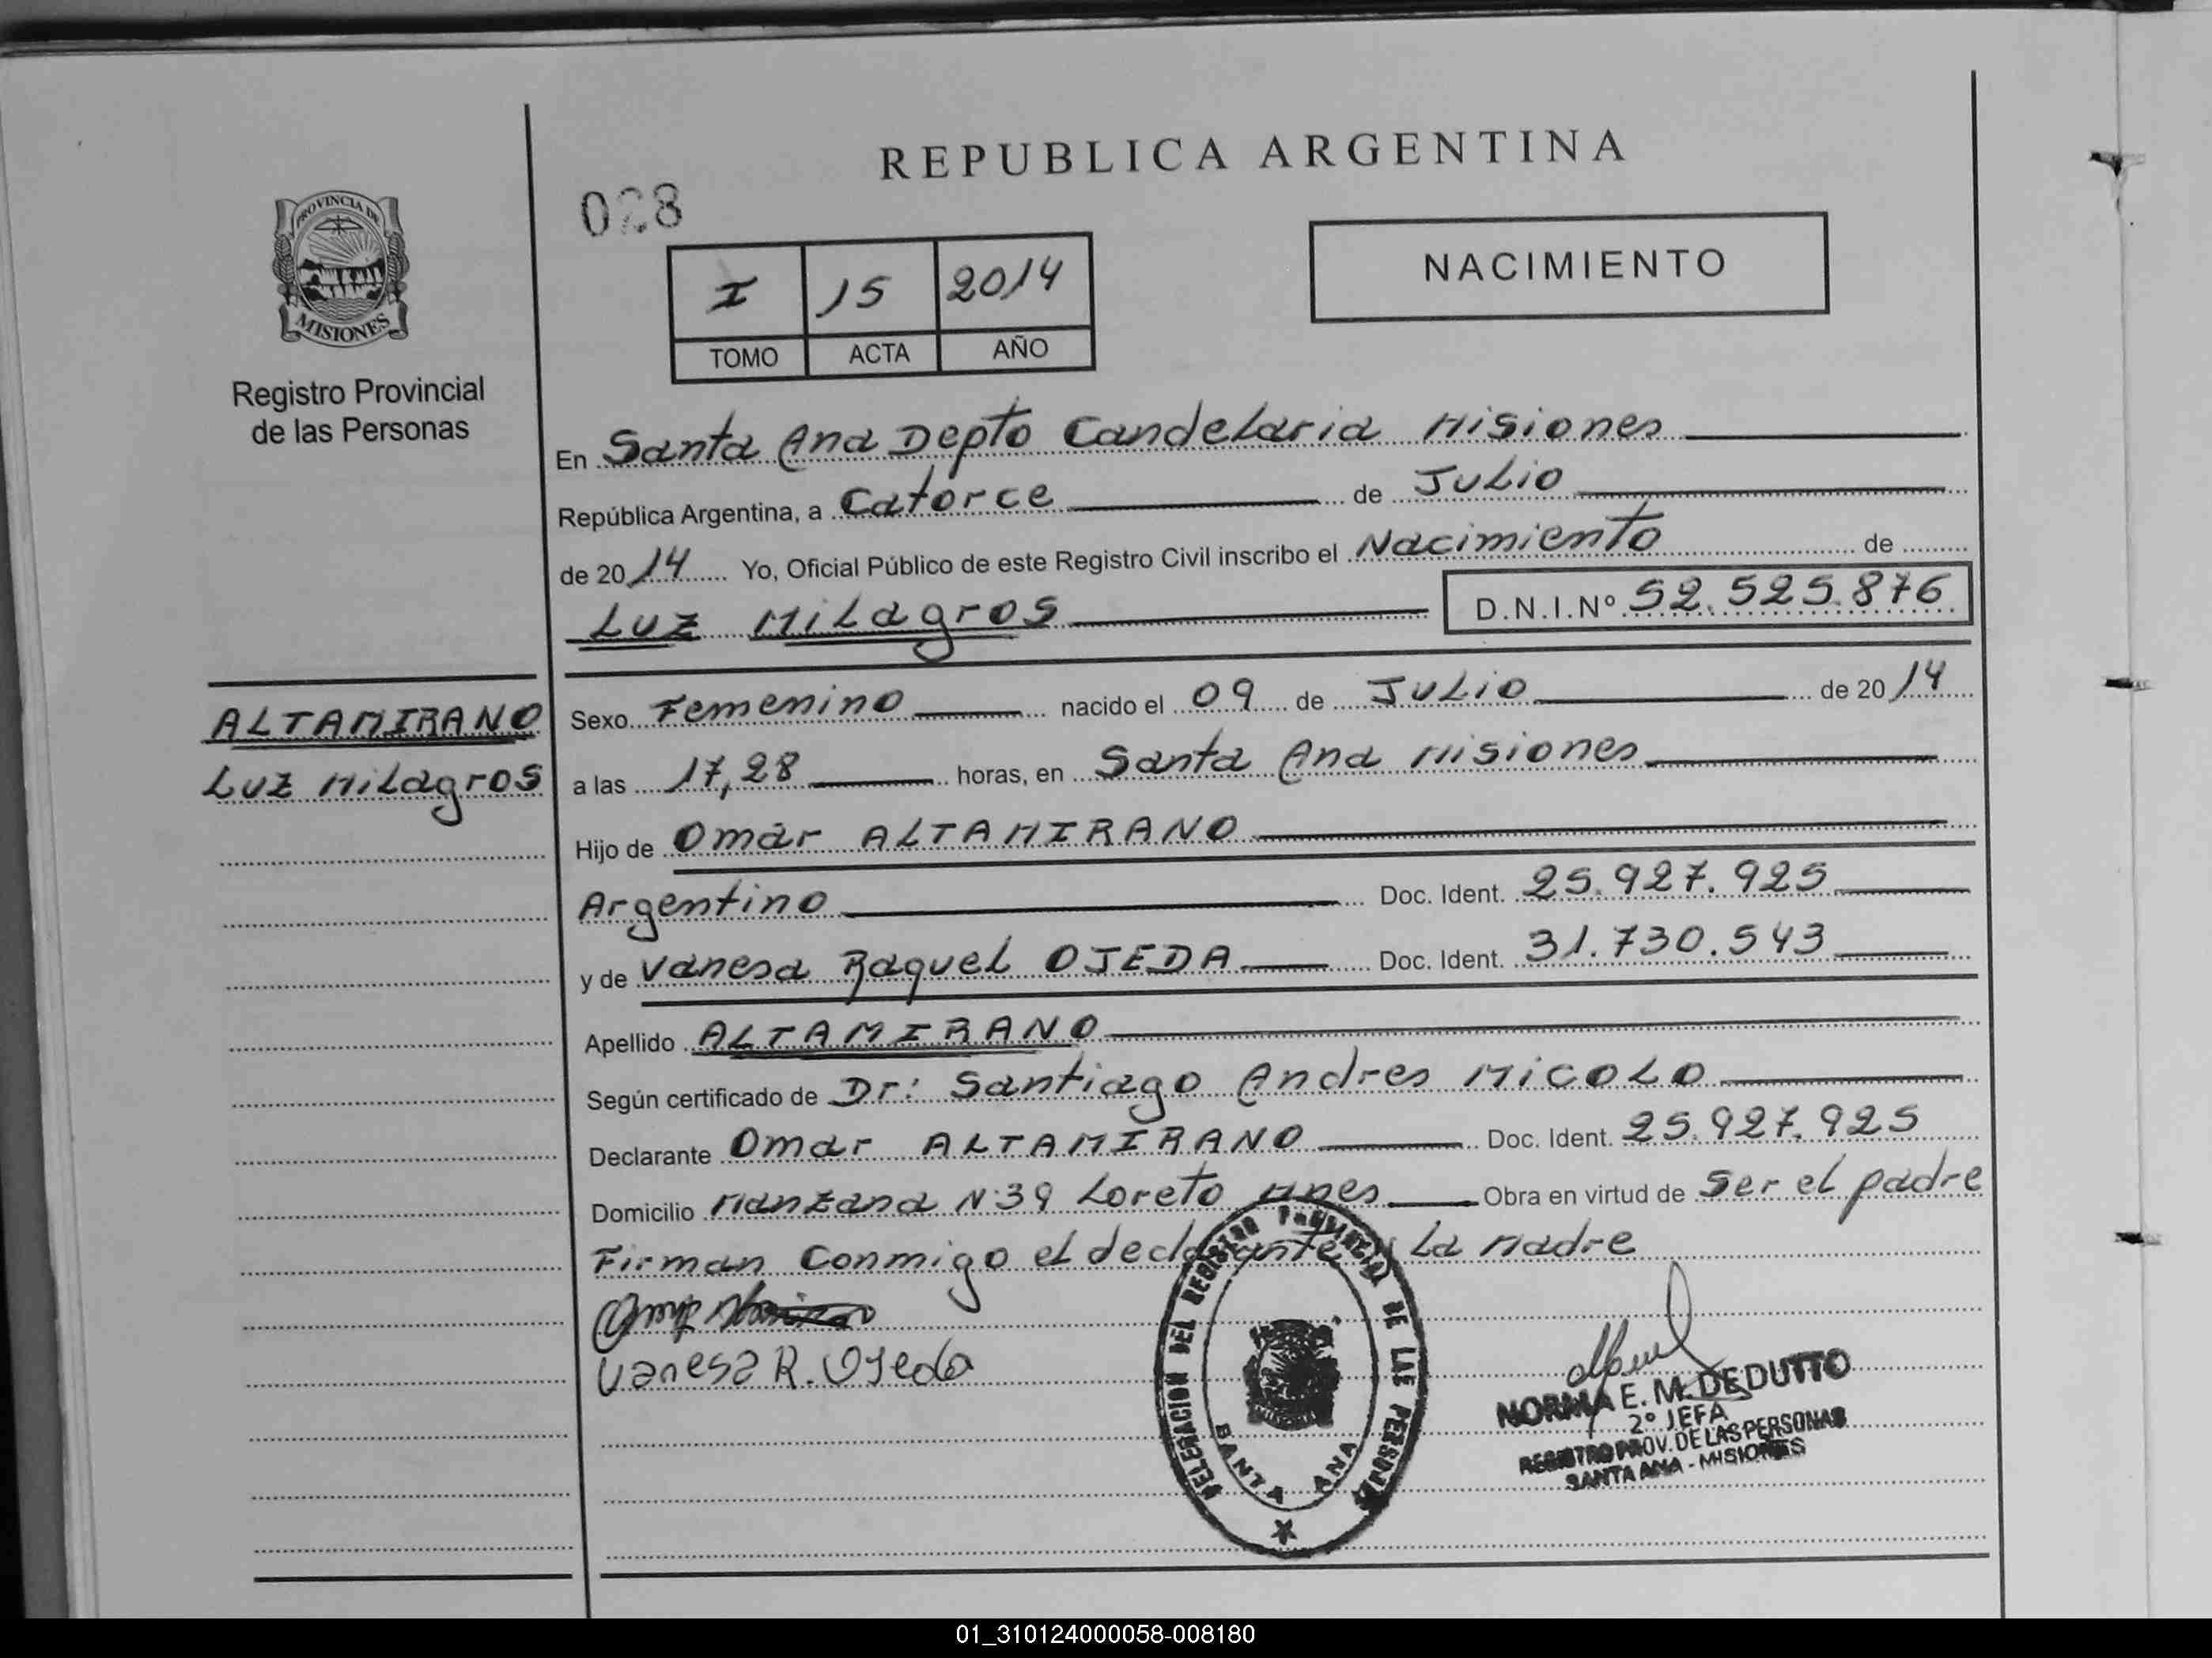 REPUBLICA ARGENTINA
PROVINCIA DE
MISIONES
Registro Provincial
de las Personas
028
NACIMIENTO
I 15 2014
TOMO ACTA AÑO
En Santa Ana Depto Candelaria Misiones
República Argentina, a Catorce de Julio
de 2014 Yo, Oficial Público de este Registro Civil inscribo el Nacimiento de
Luz Milagros D.N.I.Nº 52.525.876
ALTAMIRANO
Luz Milagros
Sexo Femenino nacido el 09 de Julio de 2014
a las 17,28 horas, en Santa Ana Misiones
Hijo de Omar ALTAMIRANO
Argentino Doc. Ident. 25.927.925
y de Vanesa Raquel OJEDA Doc. Ident. 31.730.543
Apellido ALTAMIRANO
Según certificado de Dr: Santiago Andres MicoLo
Declarante Omar ALTAMIRANO Doc. Ident. 25.927.925
Domicilio Manzana N:39 Loreto Mnes Obra en virtud de Ser el padre
Firman Conmigo el declarante y La Madre
Vanesa R. Ojeda
DELEGACION DEL REGISTRO PROVINCIAL DE LAS PERSONAS
SANTA ANA
NORMA E. M. DE DUTTO
2º JEFA
REGISTRO PROV. DE LAS PERSONAS
SANTA ANA - MISIONES
01_310124000058-008180